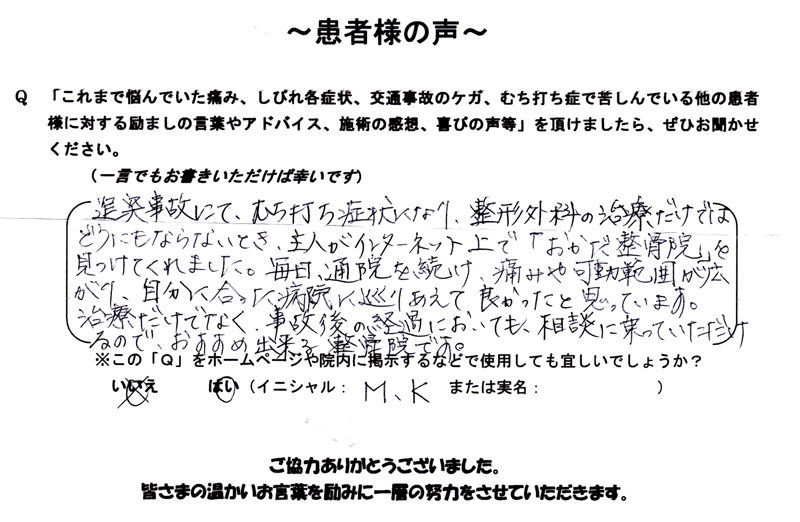 ～患者様の声～
Q 「これまで悩んでいた痛み、しびれ各症状、交通事故のケガ、むち打ち症で苦しんでいる他の患者
様に対する励ましの言葉やアドバイス、施術の感想、喜びの声等」を頂けましたら、ぜひお聞かせ
ください。
（一言でもお書きいただけば幸いです）
追突事故にて、むち打ち症状になり、整形外科の治療だけでは
どうにもならないとき、主人がインターネット上で「おかだ整骨院」を
見つけてくれました。毎日、通院を続け、痛みや可動範囲が広
がり、自分に合った病院に巡りあえて良かったと思っています。
治療だけでなく、事故後の経過においても、相談に乗っていただけ
るので、おすすめ出来る整骨院です。
※この「Q」をホームページや院内に掲示するなどで使用しても宜しいでしょうか？
いいえ はい（イニシャル： M、K または実名： ）
ご協力ありがとうございました。
皆さまの温かいお言葉を励みに一層の努力をさせていただきます。